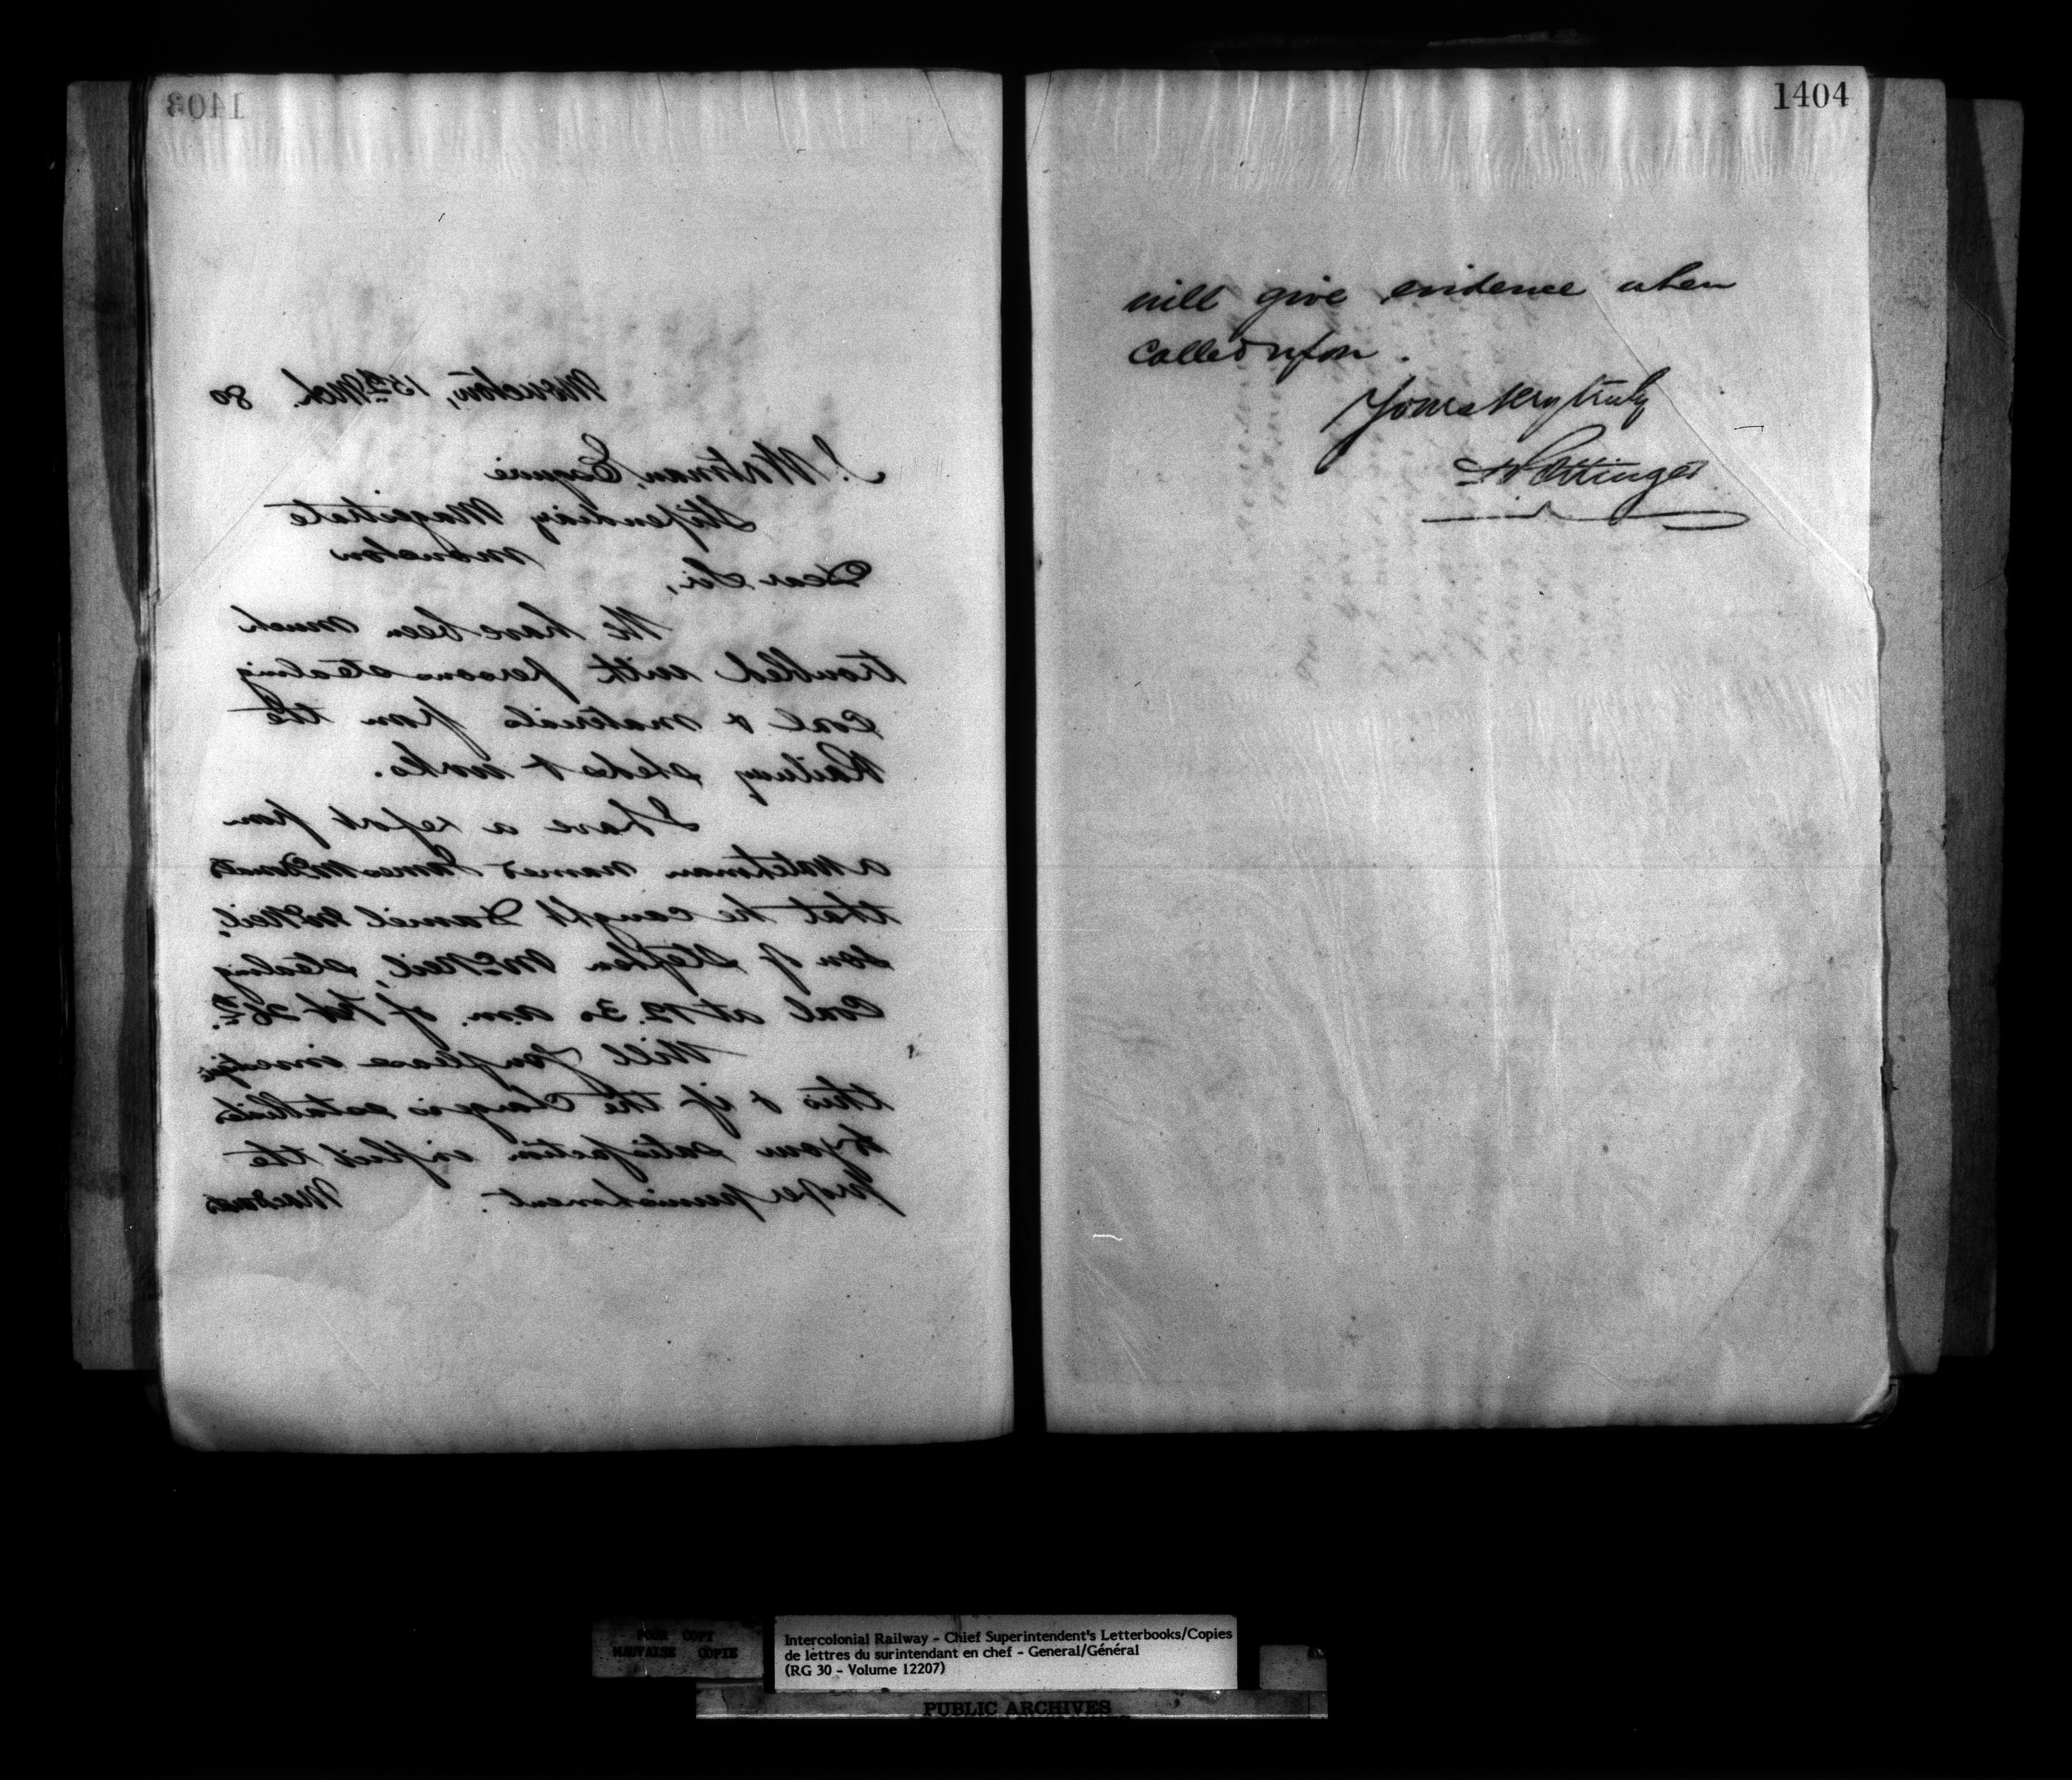 1403
Moncton, 15th Mch. 80
J. Wortman, Esquire
Stipendiary Magistrate
Moncton
Dear Sir,
We have been much
troubled with persons stealing
coal & materials from the
Railway sheds & works.
I have a report from
a watchman named James McDonald
that he caught Daniel McNeil,
son of Stephen McNeil, stealing
coal at 12.30 a.m. of Feb 26th.
Will you please investigate
this & if the charge is established
to your satisfaction inflict the
proper punishment. Macdonald
1404
will give evidence when
called upon.
Yours very truly
D Pottinger
POOR COPY
MAUVAISE COPIE
Intercolonial Railway - Chief Superintendent's Letterbooks/Copies
de lettres du surintendant en chef - General/Général
(RG 30 - Volume 12207)
PUBLIC ARCHIVES